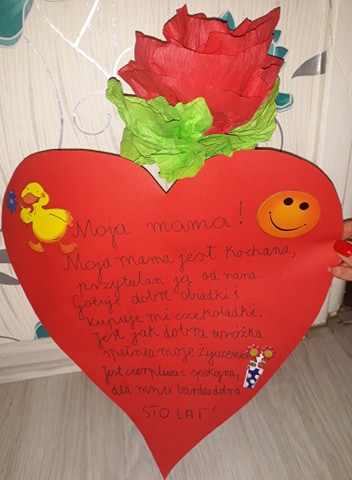 Moja mama!
Moja mama jest kochana,
przytulam ją od rana.
Gotuje dobre obiadki i
kupuje mi czekoladki.
Jest jak dobra wróżka
spełnia moje życzenia
Jest cierpliwa i spokojna,
dla mnie bardzo dobra
STO LAT!